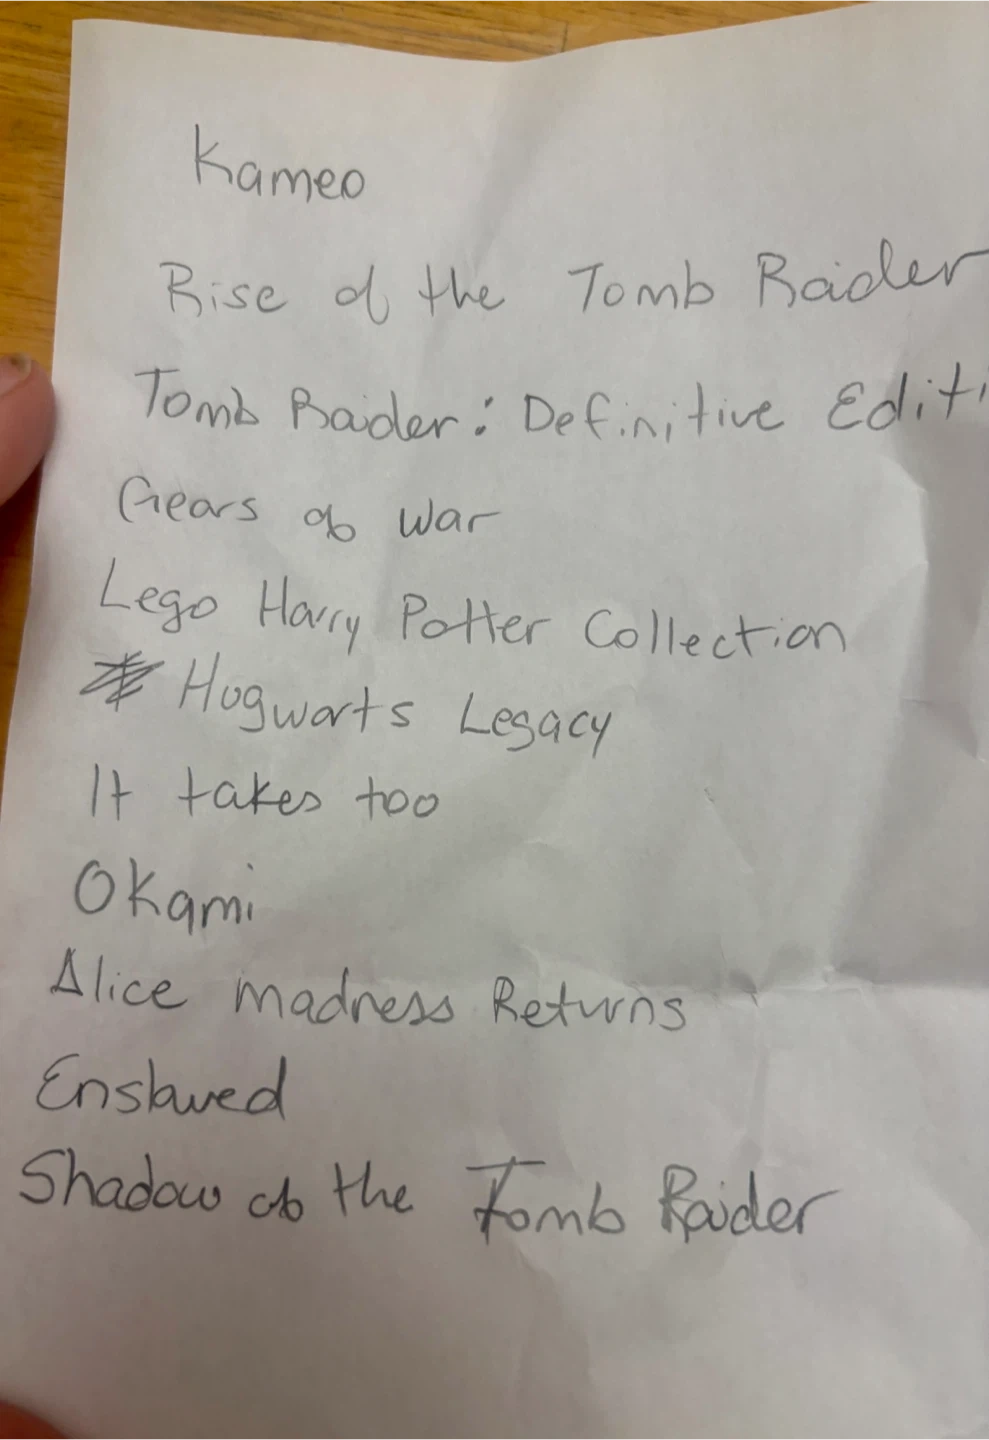 Kameo
Rise of the Tomb Raider
Tomb Raider: Definitive Editi
Gears of War
Lego Harry Potter Collection
Hogwarts Legacy
It takes too
Okami
Alice madness Returns
Enslaved
Shadow of the Tomb Raider